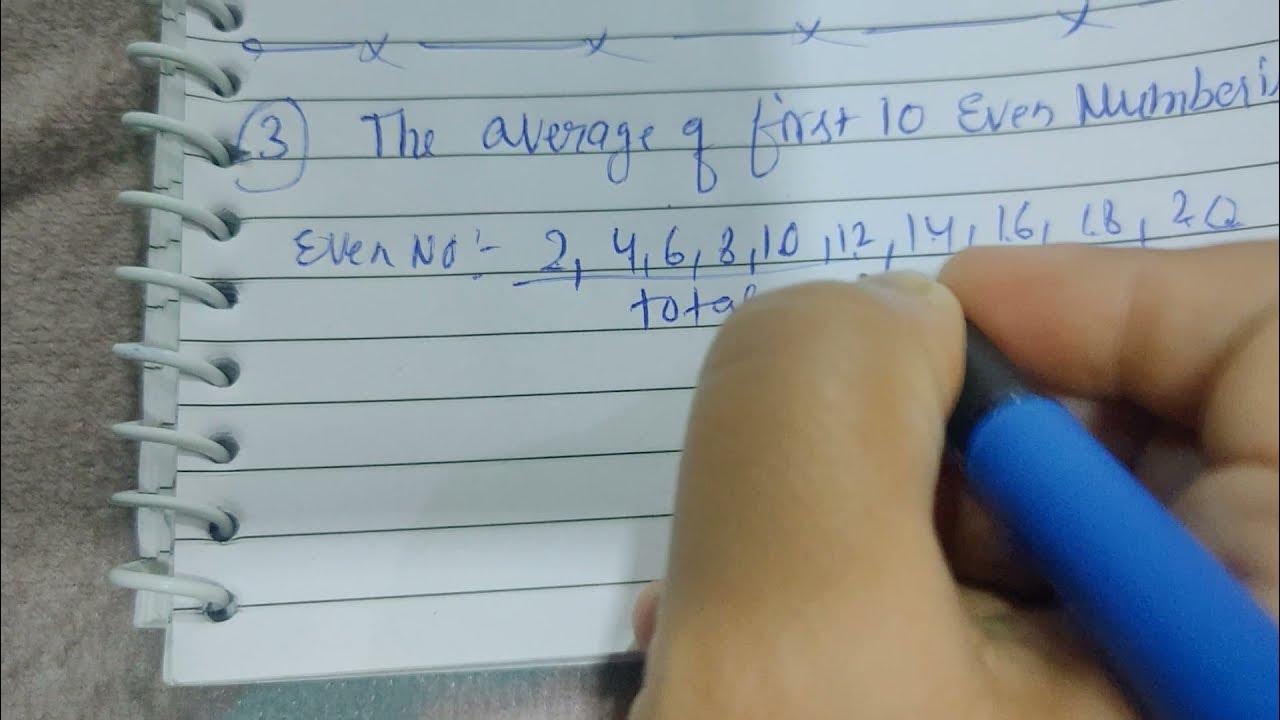 3 The average of first 10 Even Number is
Even No:- 2, 4, 6, 8, 10, 12, 14, 16, 18, 20
total